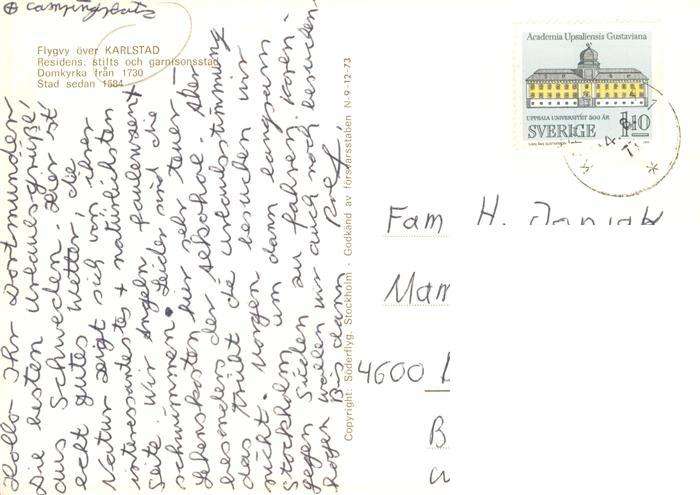 ⊕ campingplatz
Flygvy över KARLSTAD
Residens, stifts och garnisonsstad
Domkyrka från 1730
Stad sedan 1584
Hallo Ihr Dortmunder
Die besten Urlaubsgrüße,
aus Schweden. Hier ist
echt gutes Wetter, die
Natur zeigt sich von ihrer
interessantesten + natürlichsten
Seite. Wir angeln, faulenzen +
schwimmen. Leider sind die
Lebenskosten hier sehr teuer –
besonders der Alkohol. Aber
das trübt die Urlaubsstimmung
nicht. Morgen besuchen wir
Stockholm, um dann langsam
gegen Süden zu fahren. Kopen-
hagen wollen wir auch noch besuchen.
Bis dann Rolf
Copyright: Söderflyg. Stockholm - Godkänd av försvarsstaben N-9-12-73
Academia Upsaliensis Gustaviana
UPPSALA UNIVERSITET 500 ÅR
SVERIGE 1.10
Fam H.
4600